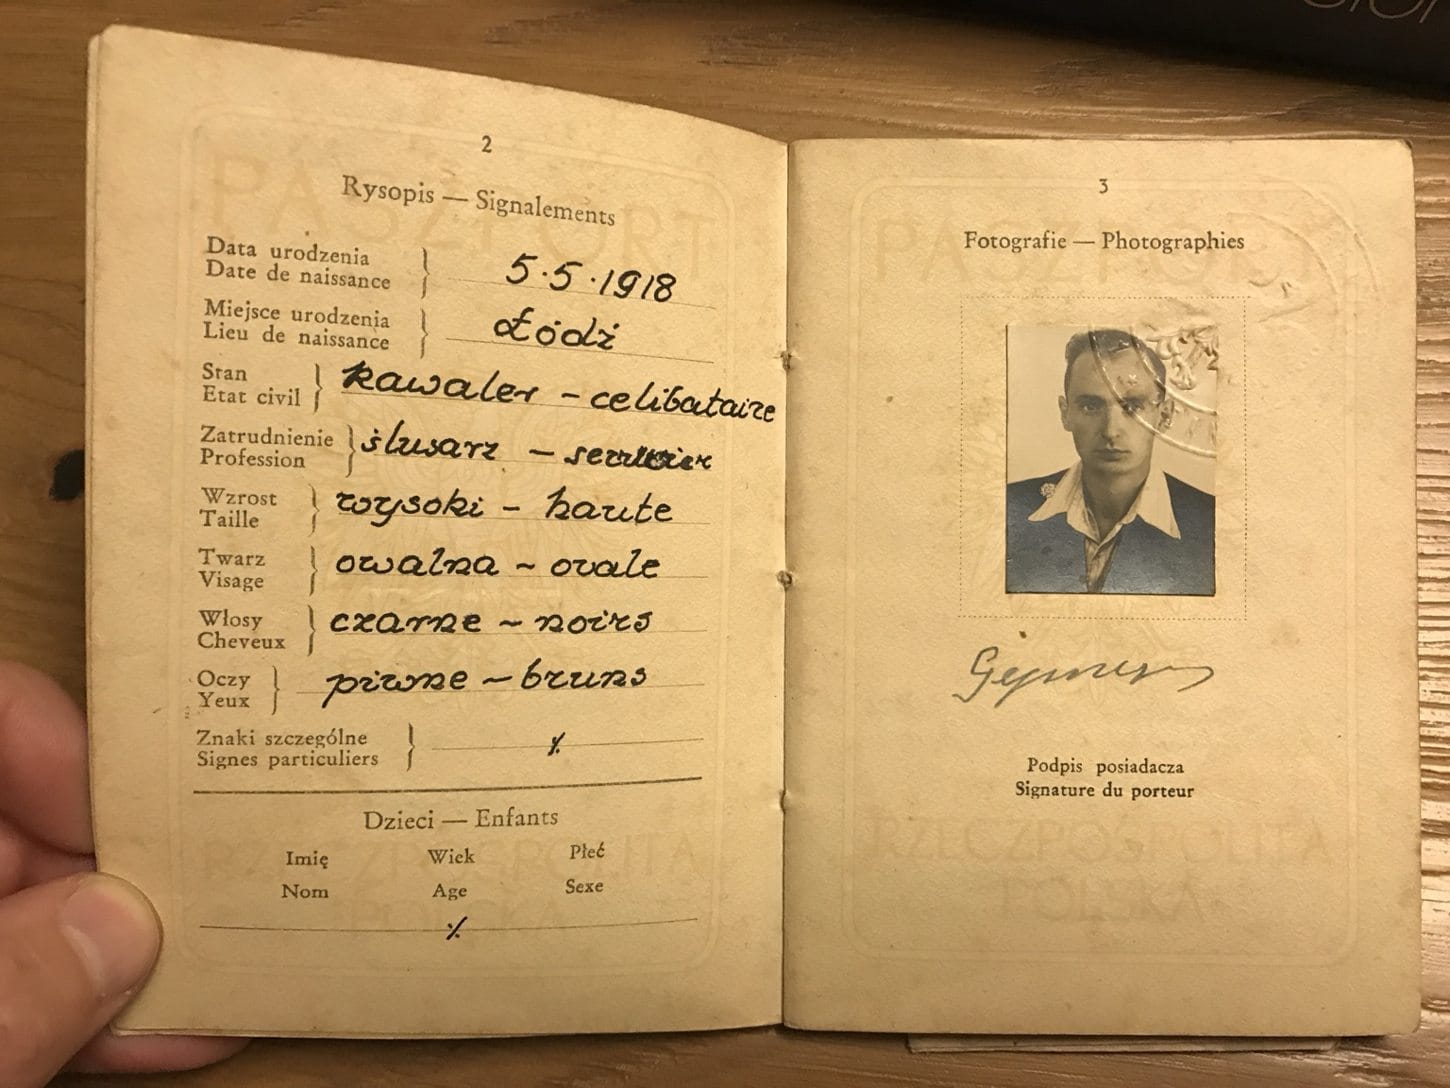 2
Rysopis — Signalements
Data urodzenia
Date de naissance
5.5.1918
Miejsce urodzenia
Lieu de naissance
Łódź
Stan
Etat civil
kawaler - celibataire
Zatrudnienie
Profession
ślusarz -
Wzrost
Taille
wysoki - haute
Twarz
Visage
owalna ~ ovale
Włosy
Cheveux
czarne ~ noirs
Oczy
Yeux
piwne ~ bruns
Znaki szczególne
Signes particuliers
٪
Dzieci — Enfants
Imię Wiek Płeć
Nom Age Sexe
٪
3
Fotografie — Photographies
Podpis posiadacza
Signature du porteur
PASZPORT
RZECZPOSPOLITA
POLSKA
PASZPORT
RZECZPOSPOLITA
POLSKA